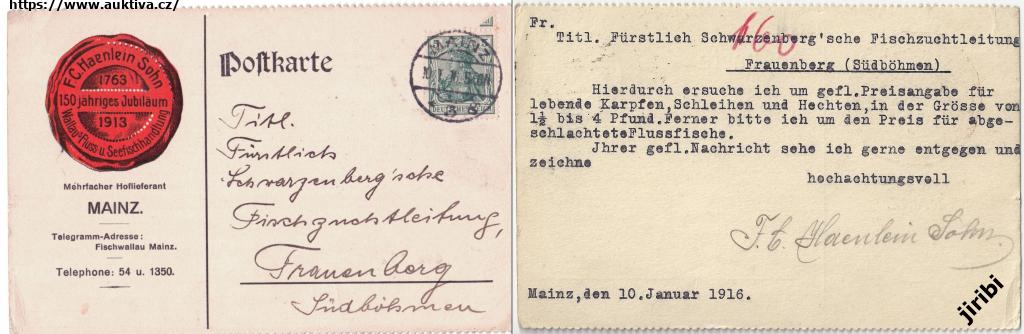 https://www.auktiva.cz/
F.C. Haenlein Sohn
1763
150 jähriges Jubiläum
1913
Wallau's Fluss u. Seefischhandlung
Mehrfacher Hoflieferant
MAINZ.
Telegramm-Adresse:
Fischwallau Mainz.
Telephone: 54 u. 1350.
Postkarte
MAINZ
Titl.
Fürstlich
Schwarzenberg'sche
Fischzuchtleitung,
Frauenberg
Südböhmen
Fr.
Titl. Fürstlich Schwarzenberg'sche Fischzuchtleitung
Frauenberg (Südböhmen)
Hierdurch ersuche ich um gefl.Preisangabe für
lebende Karpfen,Schleihen und Hechten,in der Grösse von
1½ bis 4 Pfund.Ferner bitte ich um den Preis für abge-
schlachteteFlussfische.
Jhrer gefl.Nachricht sehe ich gerne entgegen und
zeichne
hochachtungsvoll
F. C. Haenlein Sohn.
Mainz,den 10.Januar 1916.
jiribi